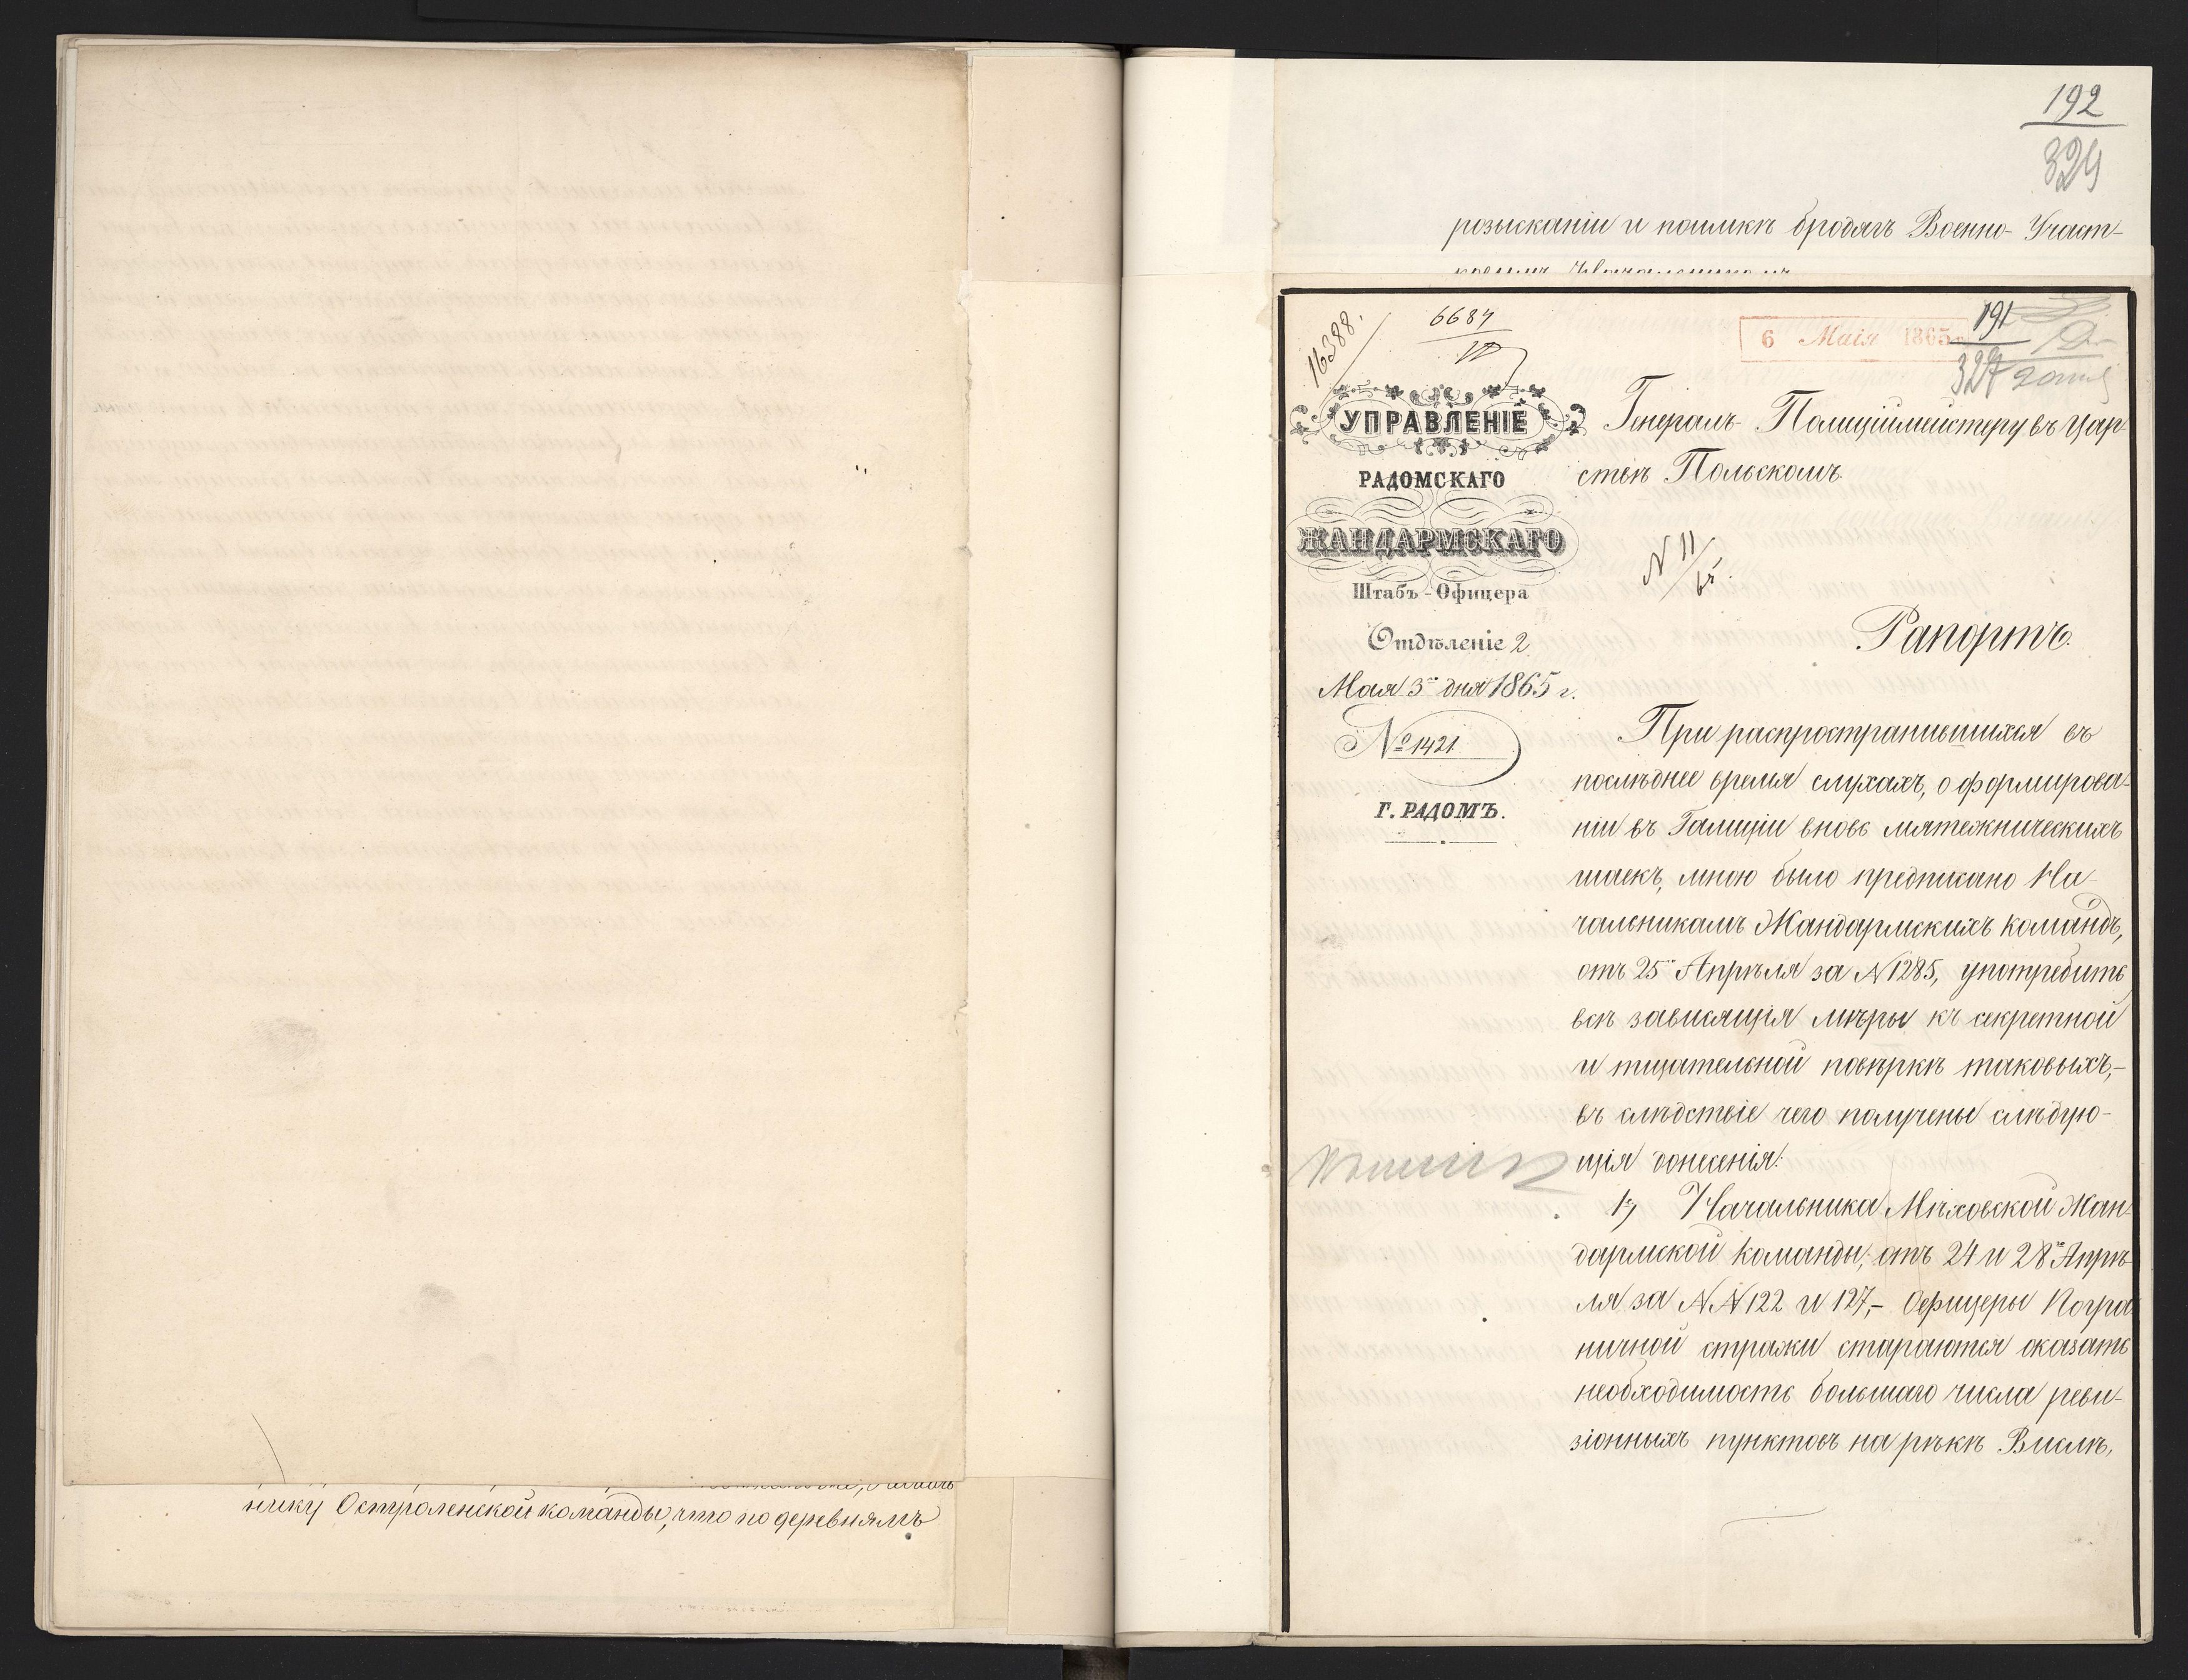 нику Остроленской команды, что по деревнямъ
192
329
розысканіи и поимкѣ бродягъ Военно-Участ-
16388.
6684
VI
6 Маія 1865
191
327
УПРАВЛЕНІЕ
РАДОМСКАГО
ЖАНДАРМСКАГО
Штабъ-Офицера
Отдѣленіе 2
Мая 3го дня 1865 г.
№ 1421
Г. РАДОМЪ.
Генералъ-Полиціймейстеру въ Цар-
ствѣ Польскомъ.
N 11/65.
Рапортъ.
При распространившихся въ
послѣднее время слухахъ, о формирова-
ніи въ Галиціи вновь мятежническихъ
шаекъ, мною было предписано На-
чальникамъ Жандармскихъ командъ,
отъ 25го Апрѣля за N 1285, употребить
всѣ зависящія мѣры къ секретной
и тщательной повѣркѣ таковыхъ,-
въ слѣдствіе чего получены слѣдую-
щія донесенія:
1, Начальника Мѣховской Жан-
дармской команды, отъ 24 и 28го Апрѣ-
ля за NN 122 и 127,- Офицеры Погра-
ничной стражи стараются оказать
необходимость большаго числа реви-
зіонныхъ пунктовъ на рѣкѣ Вислѣ,